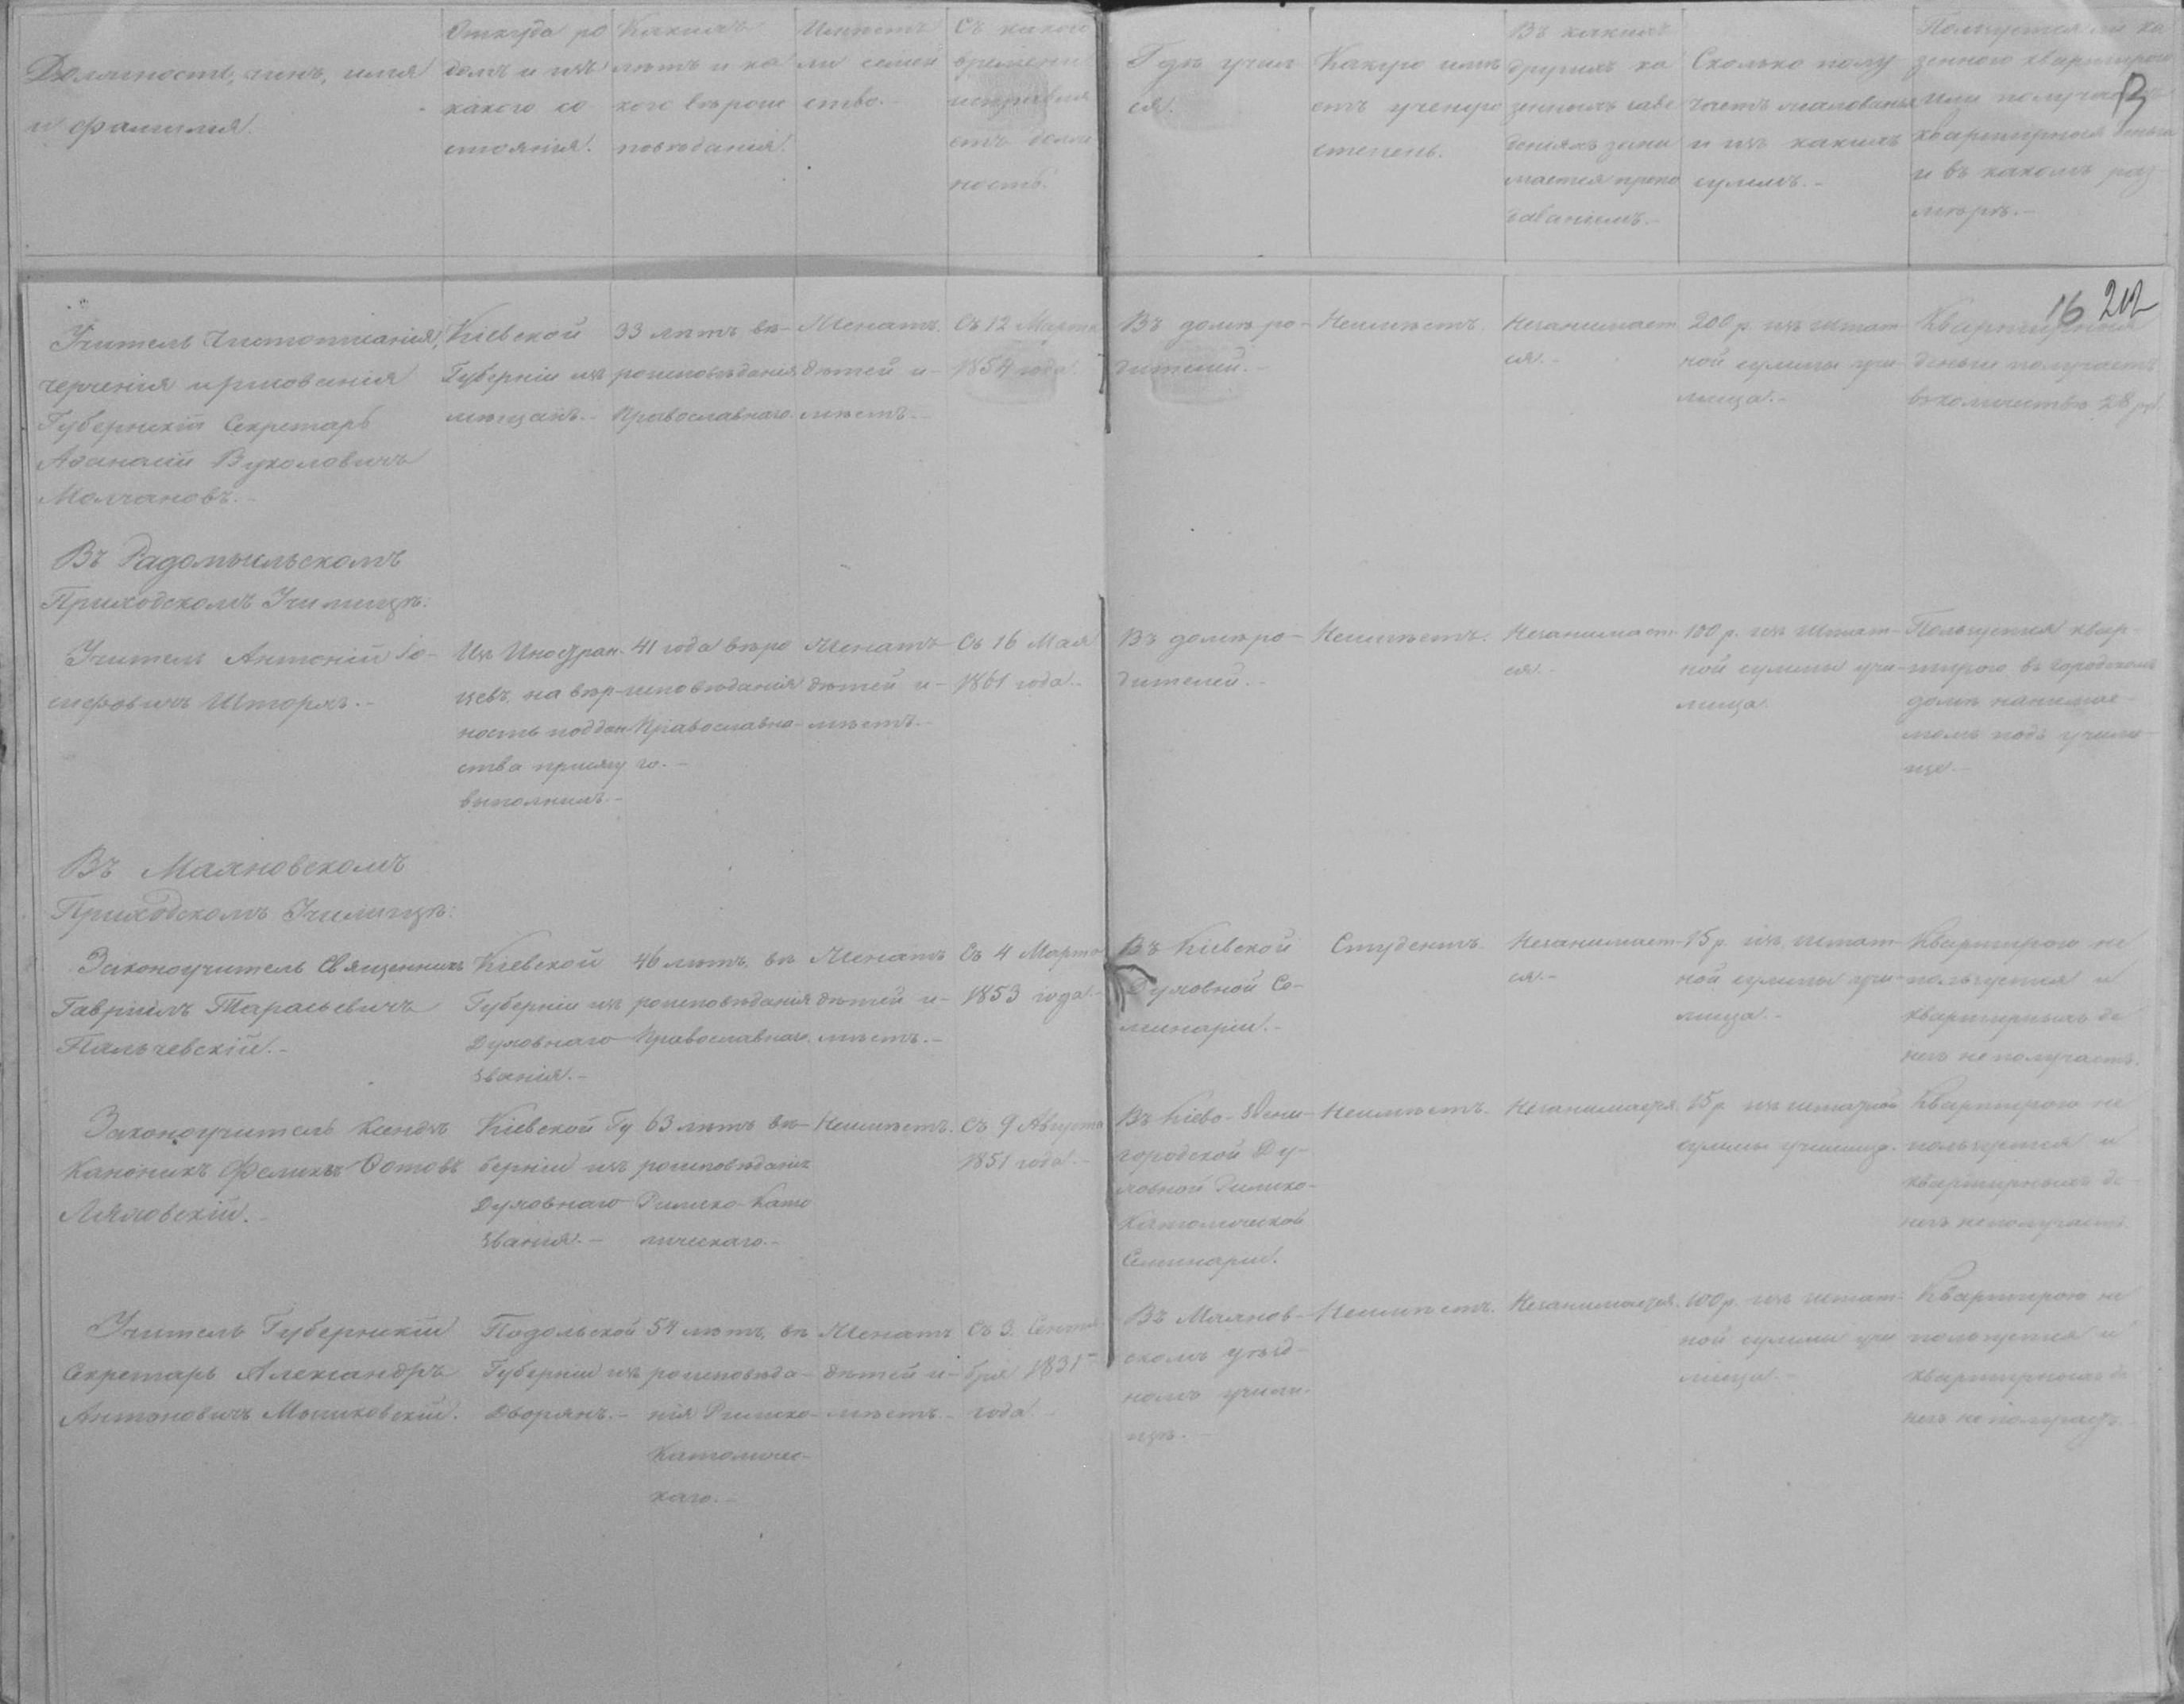 Должность, чинъ, имя
и фамилія.
Откуда ро
домъ и изъ
какого со
стоянія.
Какихъ
лѣтъ и ка
кого вѣроис
повѣданія.
Имѣетъ
ли семей
ство.-
Съ какого
времени
исправля
етъ долж
ность.
Гдѣ учил
ся.
Какую имѣ
етъ ученую
степень.
Въ какихъ
другихъ ка
зенныхъ заве
деніяхъ зани
мается препо
даваніемъ.-
Сколько полу
чаетъ жалованья
и изъ какихъ
суммъ.-
Пользуется ли ка
зенною квартирою
или получаетъ
квартирныя деньги
и въ какомъ раз
мѣрѣ.-
16 212
Учитель Чистописанія,
черченія и рисованія
Губернскій Секретарь
Аѳанасій Вуколовичъ
Молчановъ.-
Кіевской
Губерніи изъ
мѣщанъ.-
33 лѣтъ вѣ-
роисповѣданія
Православнаго.
Женатъ.
дѣтей и-
мѣетъ.-
Съ 12 Марта
1854 года.
Въ домѣ ро-
дителей.-
Неимѣетъ.
Незанимает
ся.-
200 р. изъ штат-
ной суммы учи-
лища.-
Квартирныя
деньги получаетъ
въ количествѣ 28 руб.
Въ Радомысльскомъ
Приходскомъ Училищѣ:
Учитель Антоній Іо-
сифовичъ Шторхъ.-
Изъ Иностран-
цевъ, на вѣр-
ность поддан
ства присягу
выполнилъ.-
41 года вѣро
исповѣданія
Православна-
го.-
Женатъ
дѣтей и-
мѣетъ.-
Съ 16 Мая
1861 года.-
Въ домѣ ро-
дителей.-
Неимѣетъ.
Незанимает-
ся.-
100 р. изъ штат-
ной суммы учи-
лища.
Пользуется квар-
тирою въ городскомъ
домѣ нанимае-
момъ подъ учили-
ще.-
Въ Махновскомъ
Приходскомъ Училищѣ:
Законоучитель Священникъ
Гавріилъ Тарасьевичъ
Пальчевскій.-
Кіевской
Губерніи изъ
Духовнаго
званія.-
46 лѣтъ, вѣ
роисповѣданія
Православнаго.
Женатъ
дѣтей и-
мѣетъ.-
Съ 4 Марта
1853 года.-
Въ Кіевской
Духовной Се-
минаріи.-
Студентъ.
Незанимает-
ся.-
75 р. изъ штат-
ной суммы учи-
лища.-
Квартирою не
пользуется и
квартирныхъ де
негъ не получаетъ.
Законоучитель Ксендзъ
Каноникъ Феликсъ
Ляховскій.-
Кіевской Гу
берніи изъ
Духовнаго
званія.-
63 лѣтъ вѣ-
роисповѣданія
Римско-Като
лическаго.-
Неимѣетъ.
Съ 9 Августа
1851 года.-
Въ Кіево-Звени-
городской Ду-
ховной Римско-
Католической
Семинаріи.
Неимѣетъ.
Незанимается.
75 р. изъ штатной
суммы училища.
Квартирою не
пользуется и
квартирныхъ де-
негъ неполучаетъ.
Учитель Губернскій
Секретарь Александръ
Антоновичъ
Подольской
Губерніи изъ
Дворянъ.-
54 лѣтъ, вѣ
роисповѣда-
нія Римско-
Католичес-
каго.-
Женатъ
дѣтей и-
мѣетъ.-
Съ 3. Сентя
бря 1831-
года.
Въ Махнов-
скомъ уѣзд-
номъ учили-
щѣ.-
Неимѣетъ.
Незанимается.
100 р. изъ штат-
ной суммы учи
лища.-
Квартирою не
пользуется и
квартирныхъ де
негъ не получаетъ.